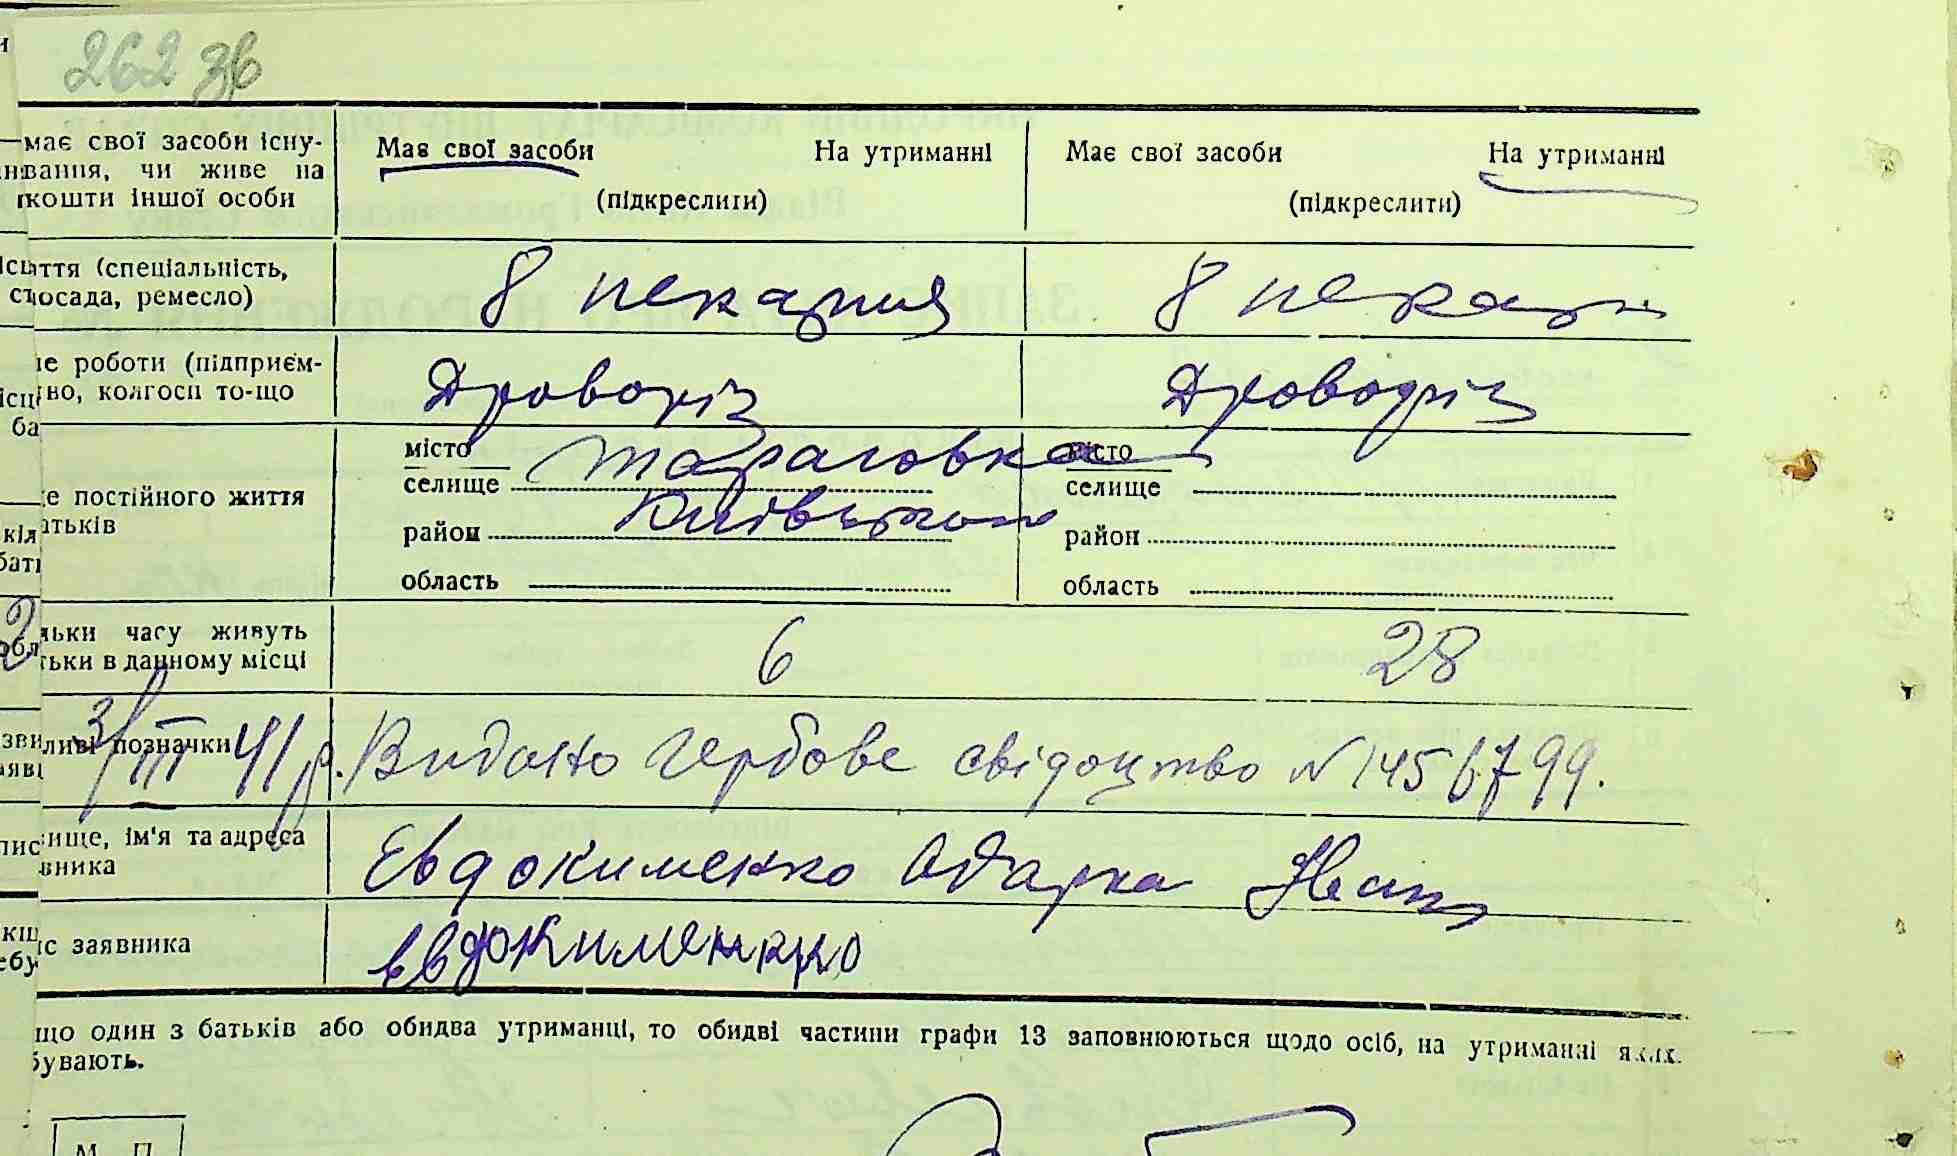 262 зв
має свої засоби існу- Має свої засоби На утриманні Має свої засоби На утриманні
вання, чи живе на
кошти іншої особи (підкреслити) (підкреслити)
ття (спеціальність, 8 пекарня 8 пекарн
посада, ремесло)
е роботи (підприєм- Дроворіз Дроворіз
во, колгосп то-що
місто Тарасовка місто
селище селище
е постійного життя Київської
атьків район район
область область
льки часу живуть 6 28
тьки в данному місці
3/III 41 р. Видано гербове свідоцтво N 1456799.
ливі позначки
ище, ім'я та адреса Евдокименко Одарка Иван
вника
с заявника евдокименко
що один з батьків або обидва утриманці, то обидві частини графи 13 заповнюються щодо осіб, на утриманні яких
бувають.
М. П.